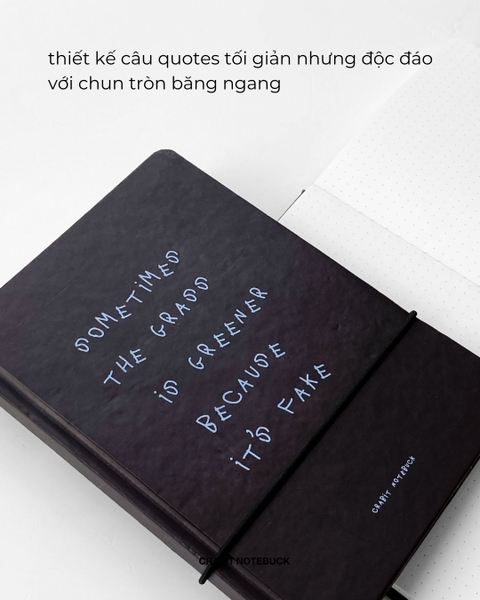 thiết kế câu quotes tối giản nhưng độc đáo
với chun tròn băng ngang
SOMETIMES
THE GRASS
iS GREENER
BECAUSE
iT'S FAKE
CRABIT NOTEBUCK
CRABIT NOTEBUCK